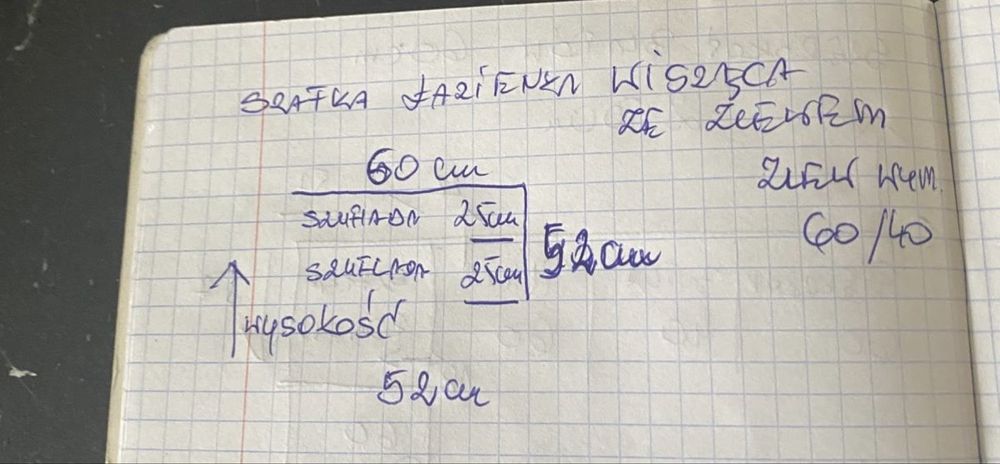 SZAFKA ŁAZIENKA WISZĄCA
ZE ZLEWEM
60 cm
ZLEW WYM.
60/40
SZUFLADA 25cm
52cm
SZUFLADA 25cm
wysokość
52cm